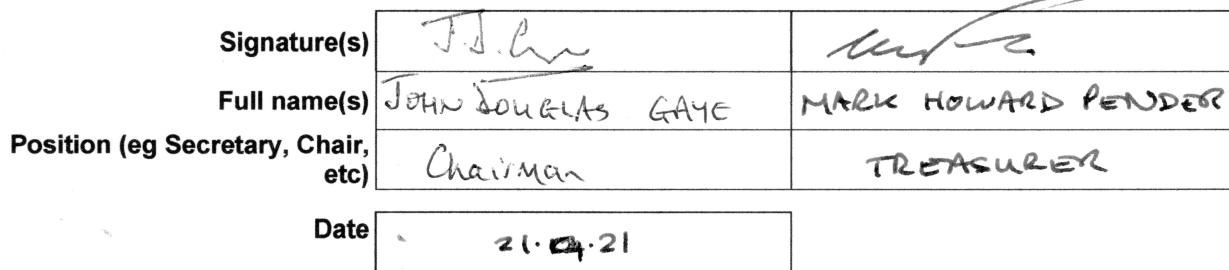 Signature(s) J.D.
Full name(s) JOHN DOUGLAS GAYE MARK HOWARD PENDER
Position (eg Secretary, Chair,
etc) Chairman TREASURER
Date 21.04.21